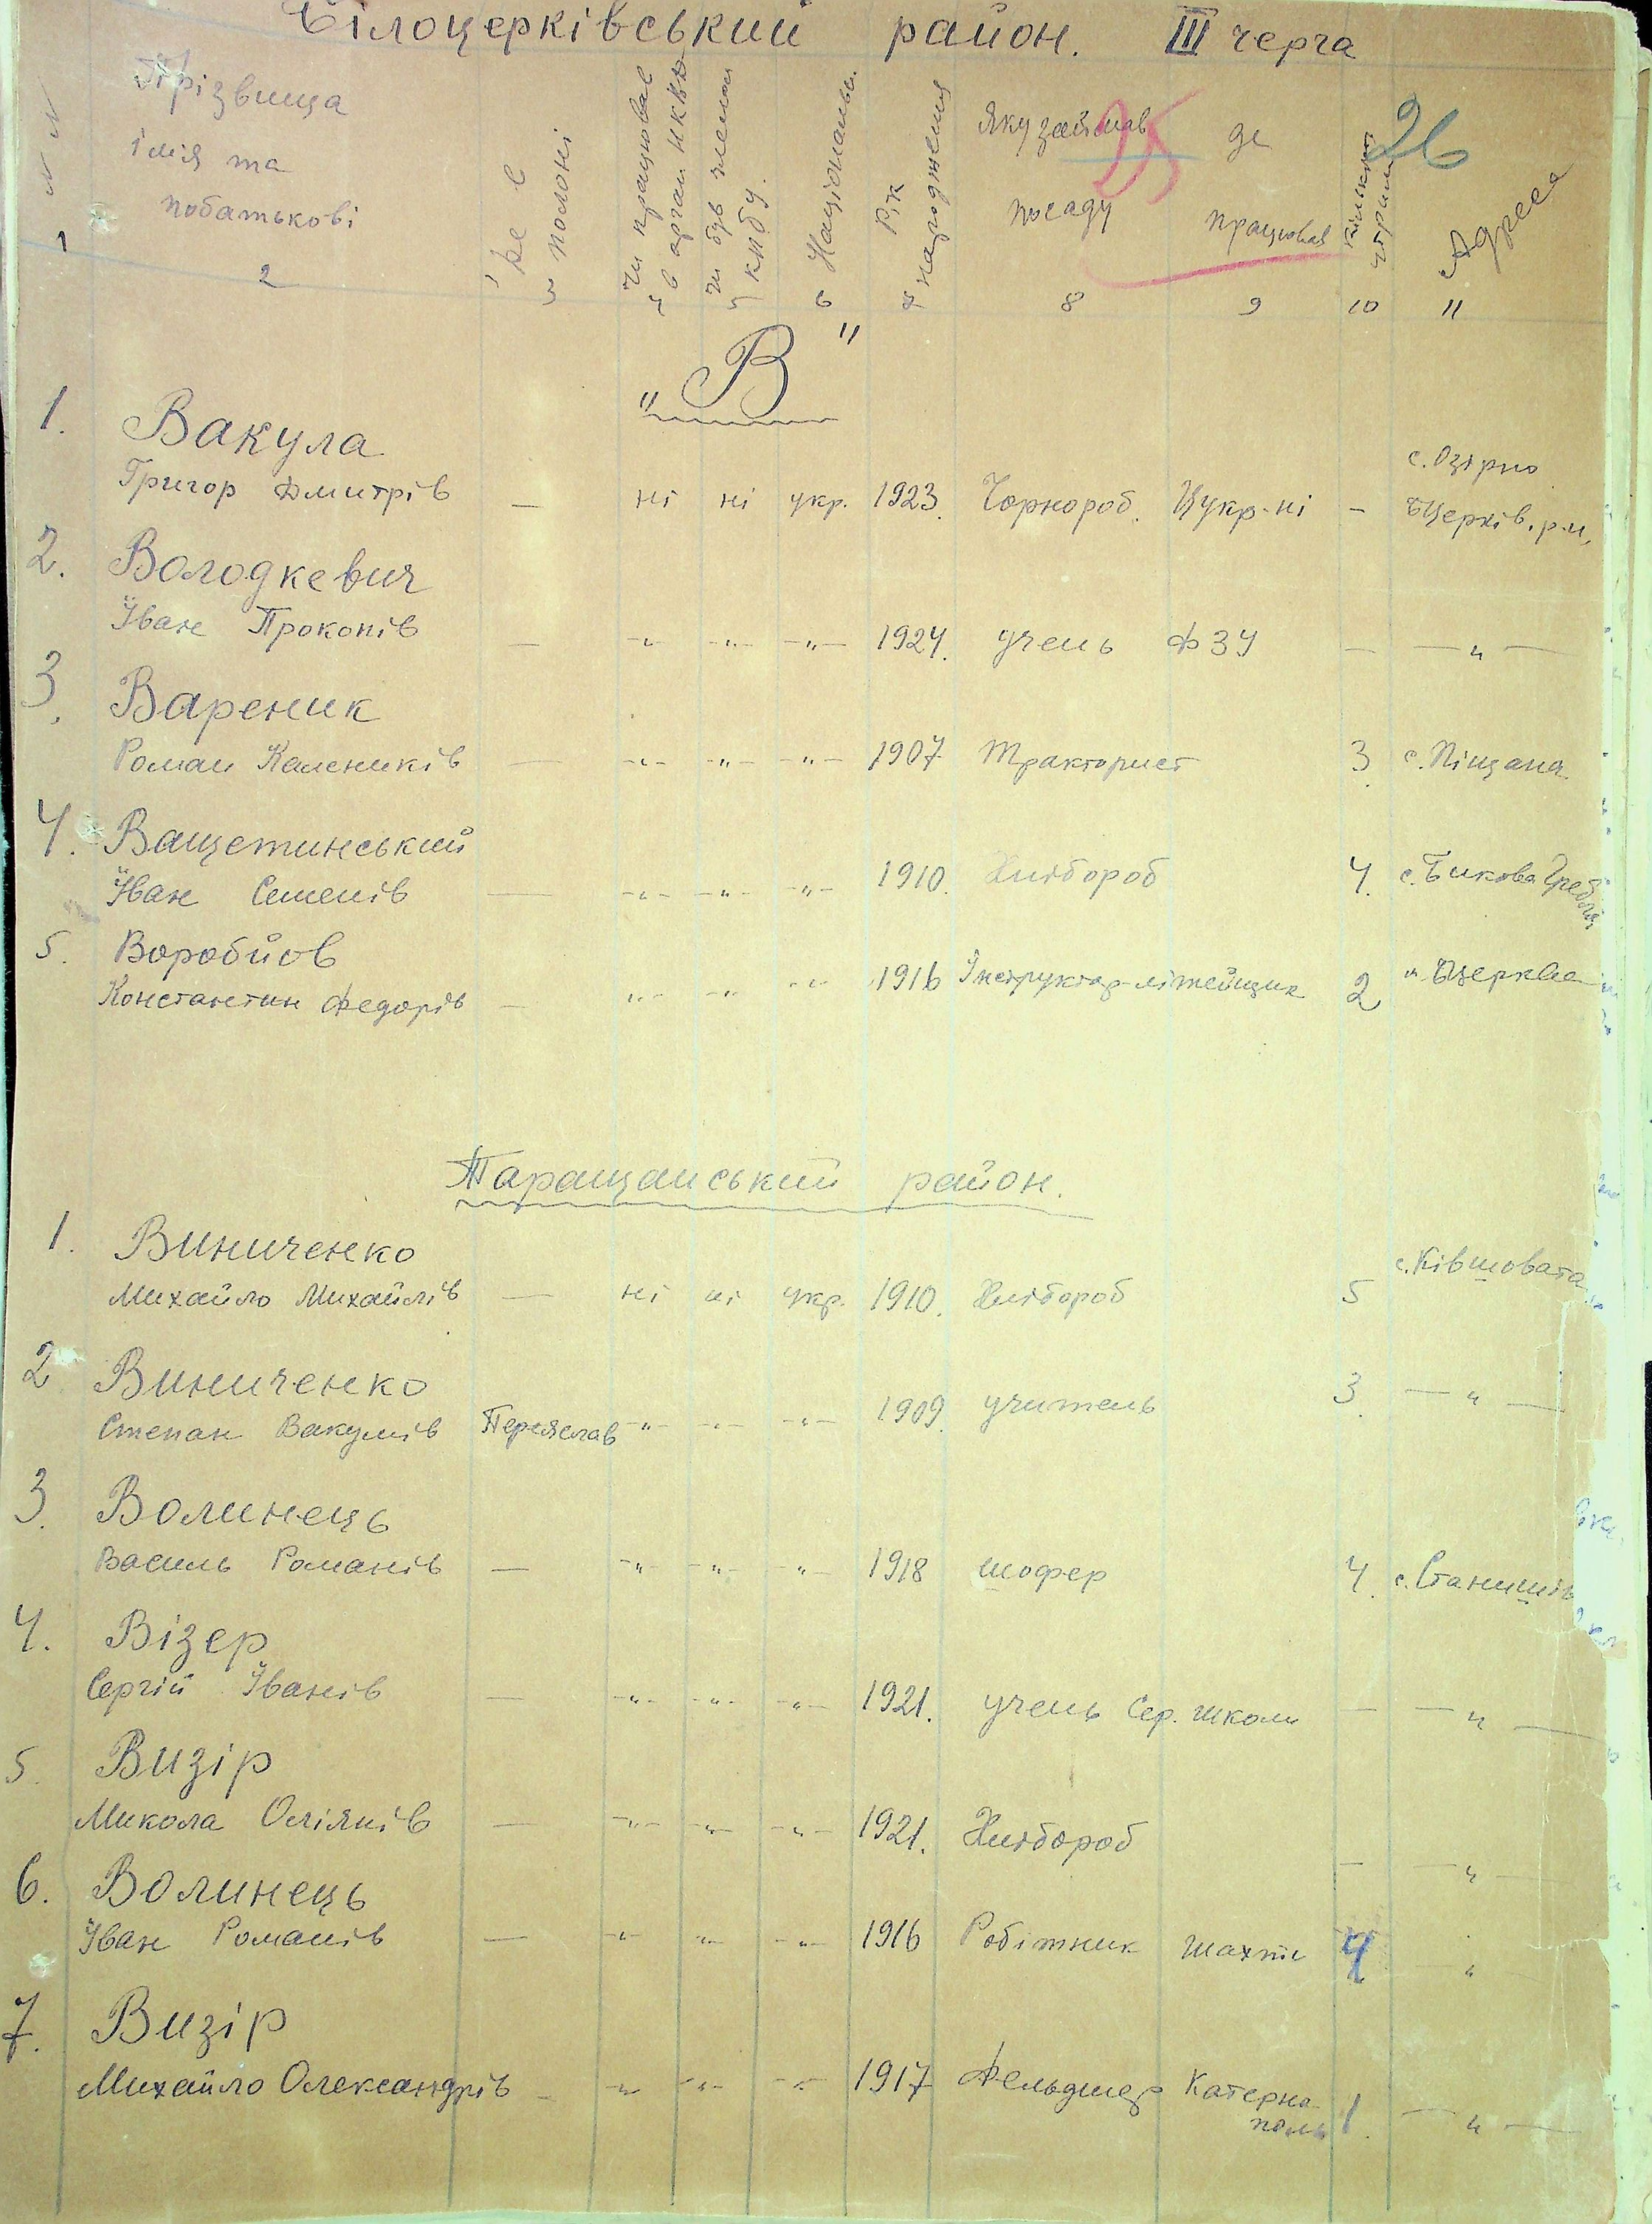 Білоцерківський район. III черга
Прізвища
імія та
побатькові
Де є
в полоні
Чи працював
в орган НКВД
чи був членом
КПбУ.
Національн.
Рік
народження
Яку займав
посаду
де
працював
25
26
Адреса
1 2 3 4 5 6 7 8 9 10 11
"В"
1. Вакула
Григор Дмитрів — ні ні укр. 1923. Чорнороб. Цукр-ні — с. Озірно
БЦерків. р-н,
2. Володкевич
Іван Прокопів — -"- -"- -"- 1924. учень ФЗУ — — " —
3. Вареник
Роман Калеників — -"- -"- -"- 1907 Тракторист 3 с. Піщана
4. Ващетинський
Іван Семенів — -"- -"- -"- 1910. Хлібороб 4. с. Бикова Гребля
5. Воробйов
Константин Федорів — -"- -"- -"- 1916 Інструктор-літейщик 2 м. БЦерква
Таращанський район.
1. Виниченко
Михайло Михайлів — ні ні укр. 1910. Хлібороб 5 с. Ківшовата
2 Виниченко
Степан Вакулів Переяслав -"- -"- -"- 1909. учитель 3. — " —
3. Волинець
Василь Романів — -"- -"- -"- 1918 шофер 4. с. Станишів
4. Візер
Сергій Іванів — -"- -"- -"- 1921. учень Сер. школи — — " —
5. Визір
Микола Оліянів — -"- -"- -"- 1921. Хлібороб — — " —
6. Волинець
Іван Романів — -"- -"- -"- 1916 Робітник шахти 4 — " —
7. Визір
Михайло Олександрів — -"- -"- -"- 1917 Фельдшер Катерно
поль 1. — " —